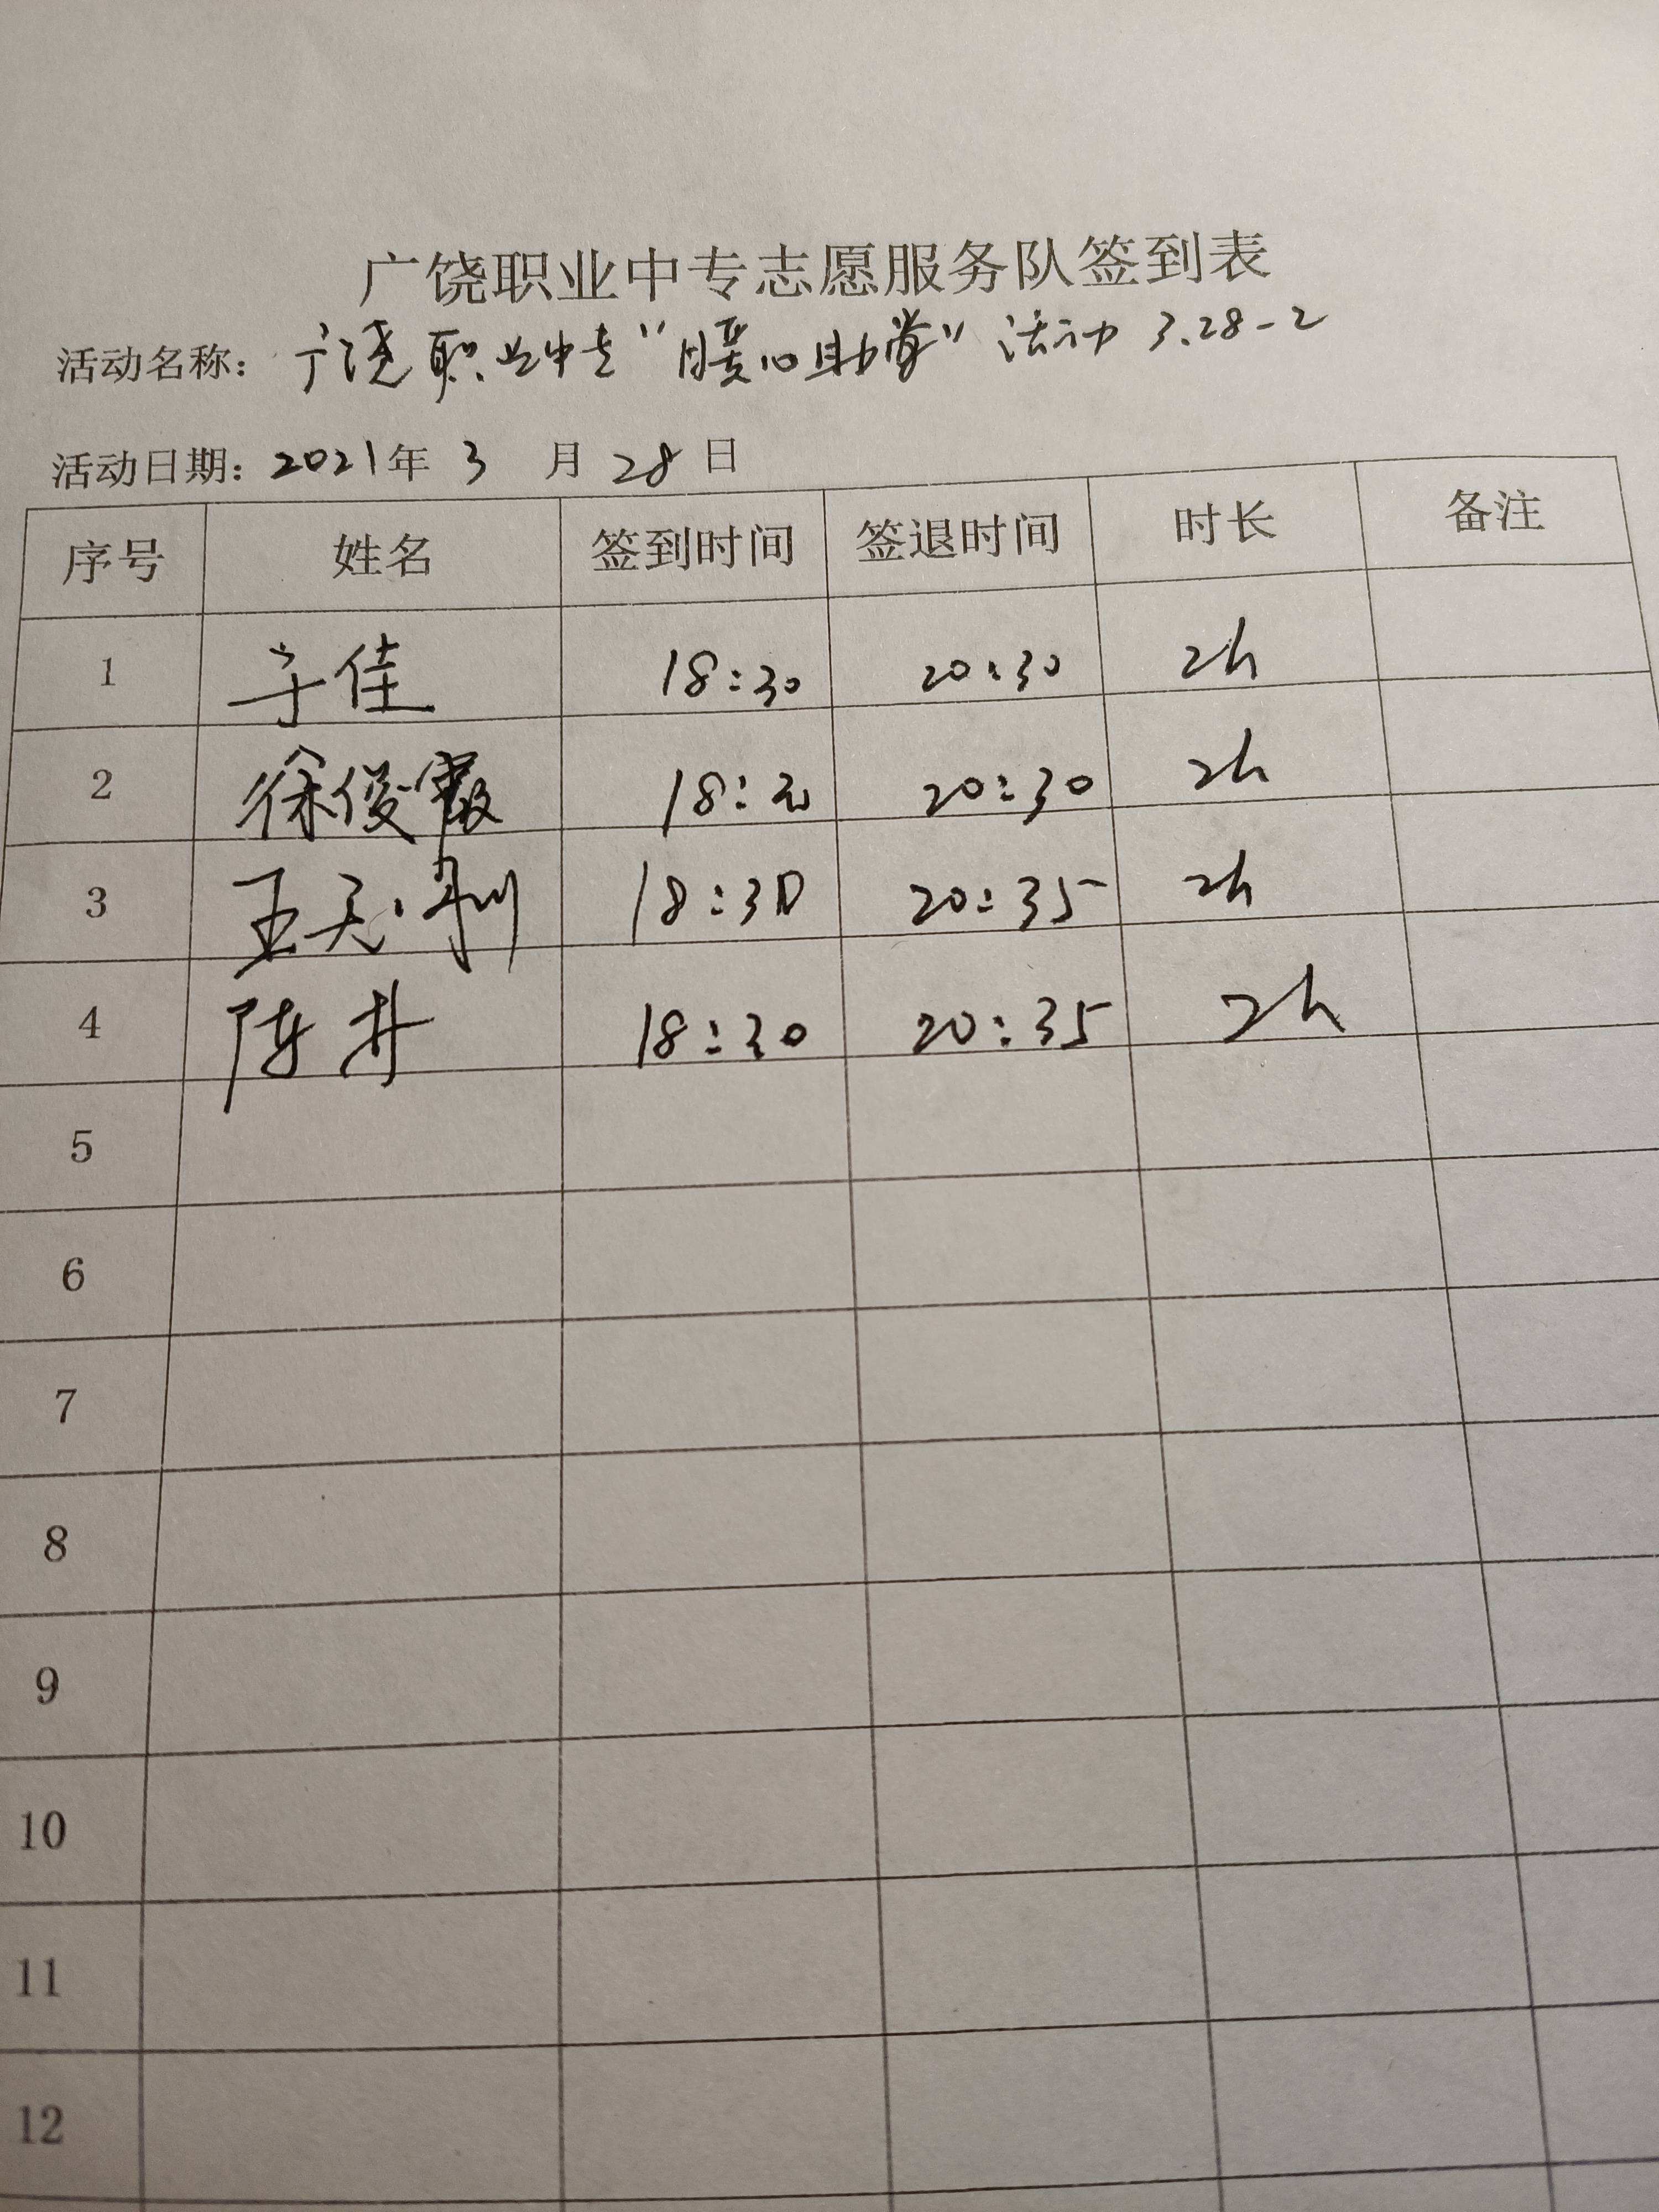 广饶职业中专志愿服务队签到表
活动名称：广饶职业中专“暖心助学”活动 3.28-2
活动日期：2021年 3 月 28 日
序号 姓名 签到时间 签退时间 时长 备注
1 于佳 18:30 20:30 2h
2 徐俊霞 18:30 20:30 2h
3 王天 18:30 20:35 2h
4 陈井 18:30 20:35 2h
5
6
7
8
9
10
11
12